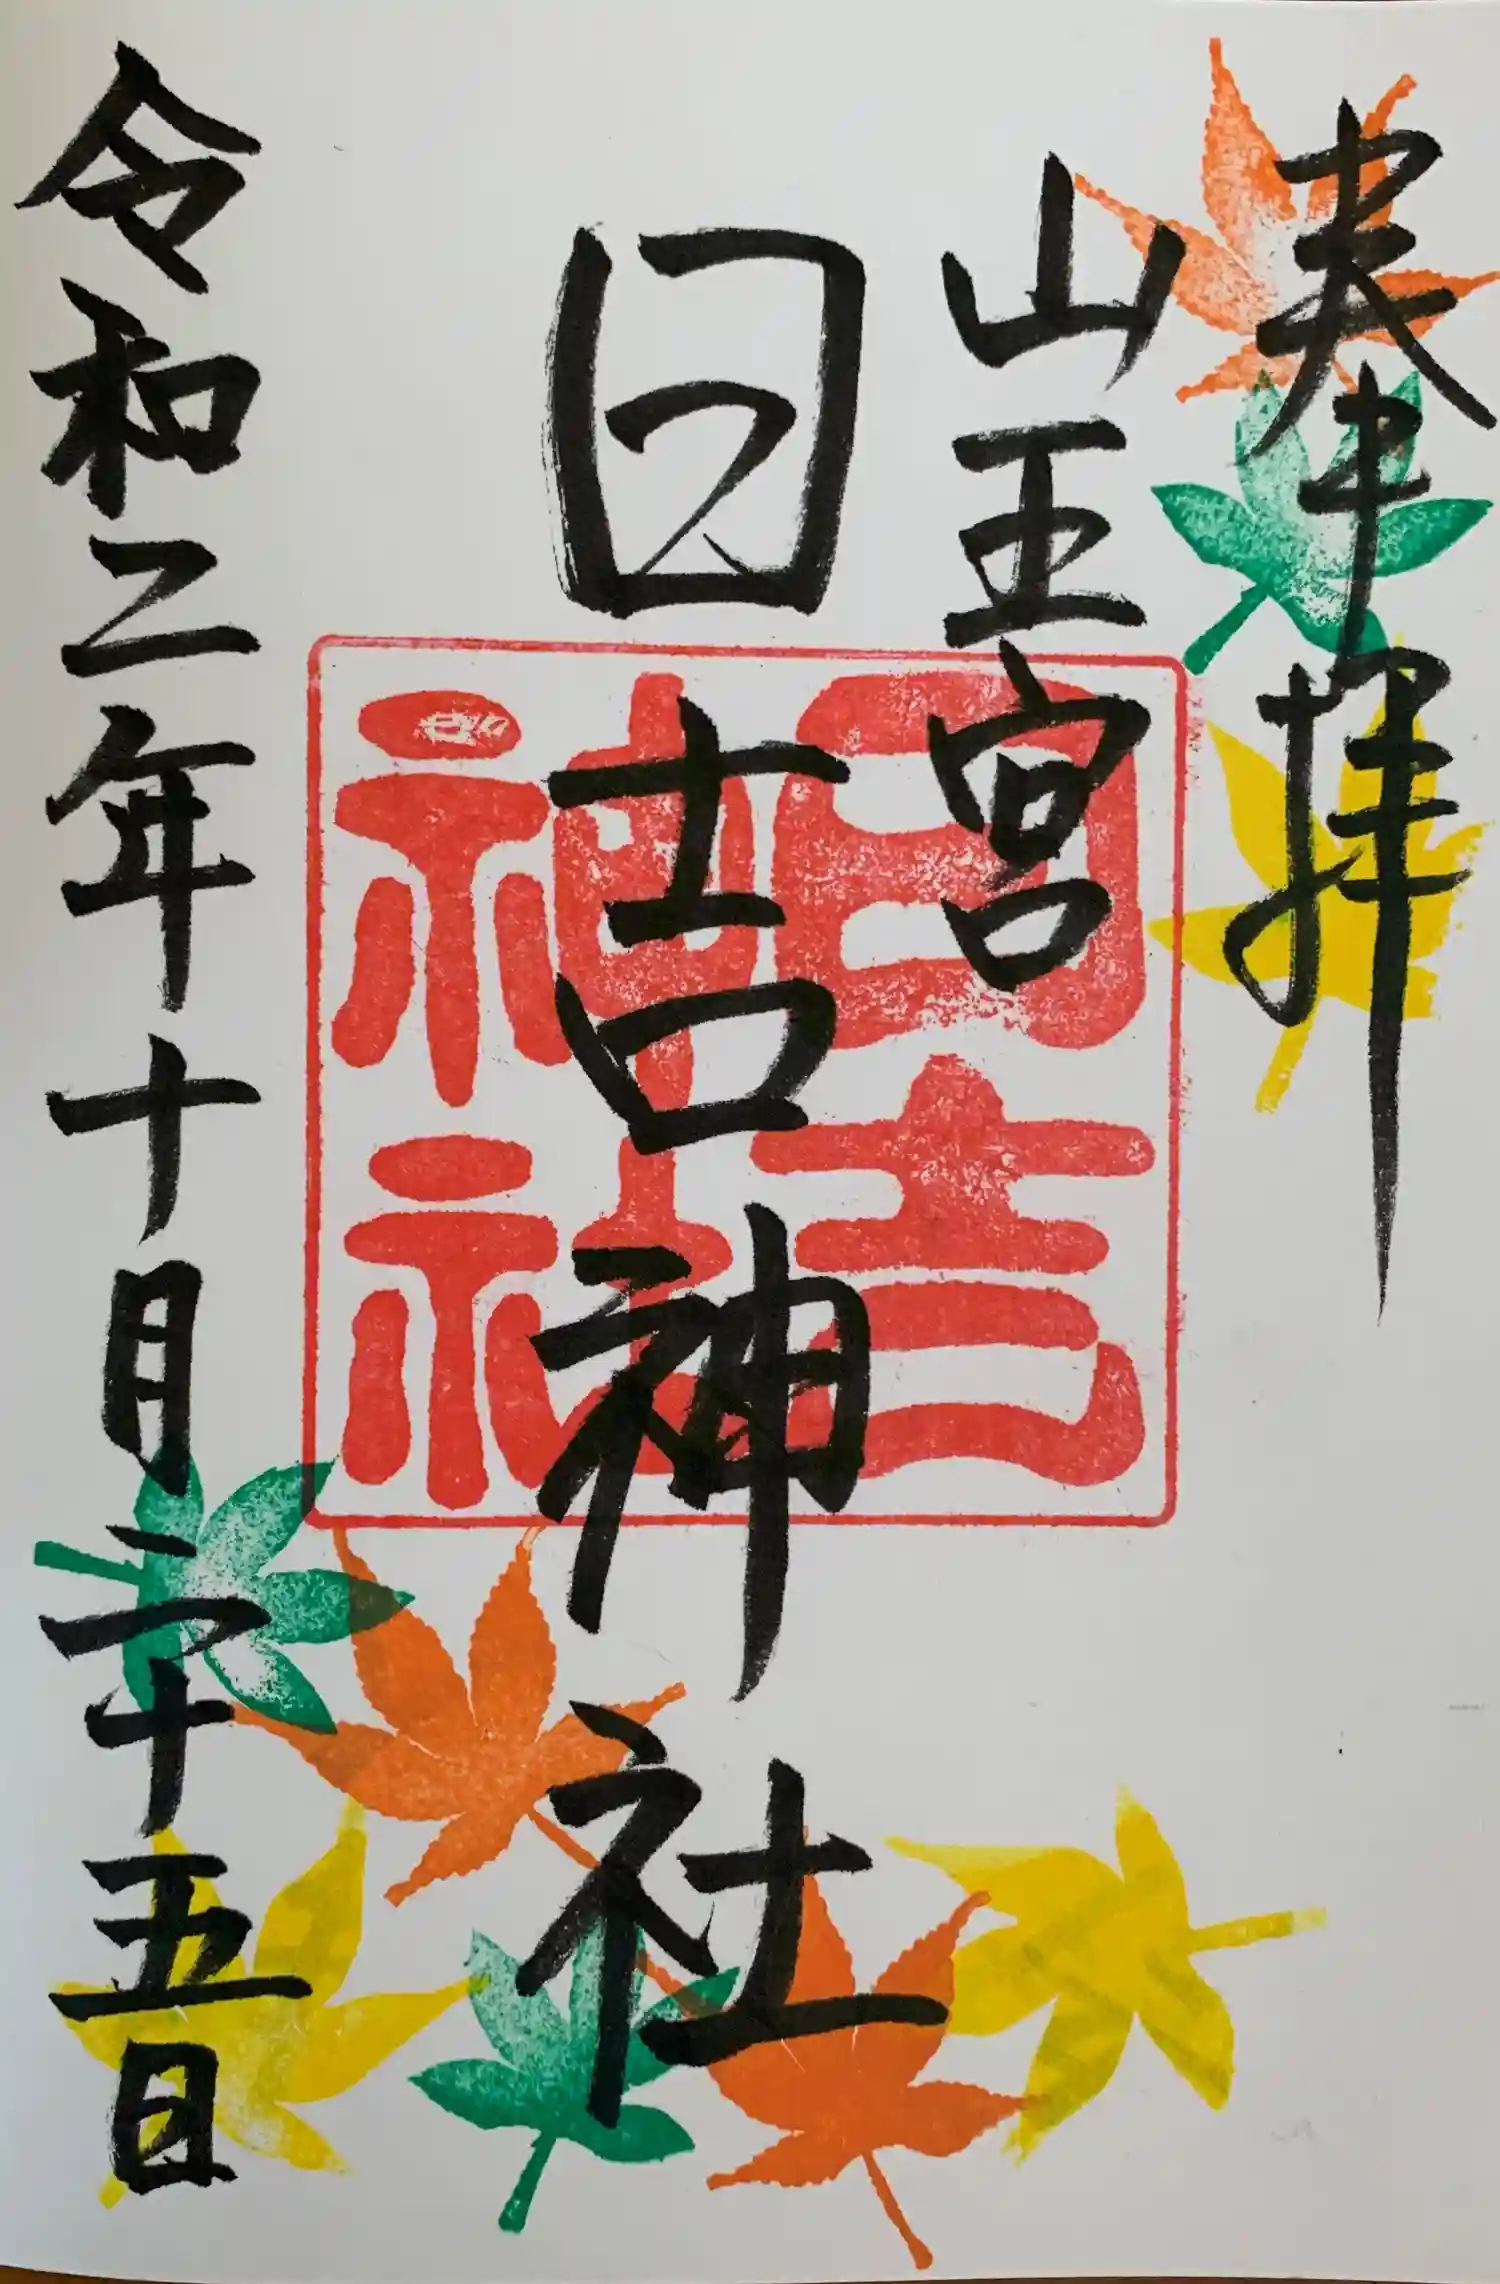 奉拝
山王宮
日吉神社
日吉
神社
令和二年十月二十五日